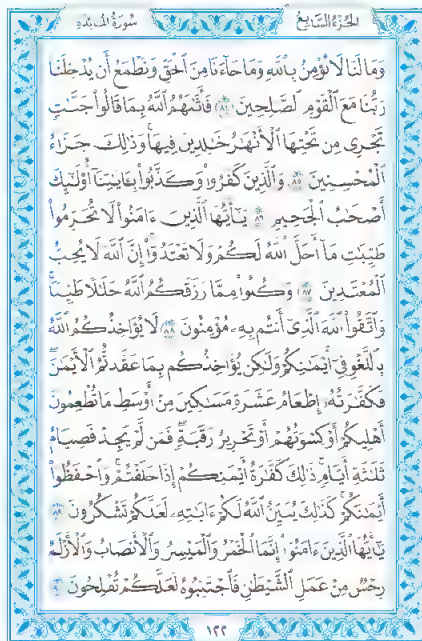 الجزء السابع سورة المائدة
وَمَا لَنَا لَا نُؤْمِنُ بِٱللَّهِ وَمَا جَآءَنَا مِنَ ٱلْحَقِّ وَنَطْمَعُ أَن يُدْخِلَنَا
رَبُّنَا مَعَ ٱلْقَوْمِ ٱلصَّٰلِحِينَ ٨٤ فَأَثَٰبَهُمُ ٱللَّهُ بِمَا قَالُوا۟ جَنَّٰتٍ
تَجْرِى مِن تَحْتِهَا ٱلْأَنْهَٰرُ خَٰلِدِينَ فِيهَا وَذَٰلِكَ جَزَآءُ
ٱلْمُحْسِنِينَ ٨٥ وَٱلَّذِينَ كَفَرُوا۟ وَكَذَّبُوا۟ بِـَٔايَٰتِنَآ أُو۟لَٰٓئِكَ
أَصْحَٰبُ ٱلْجَحِيمِ ٨٦ يَٰٓأَيُّهَا ٱلَّذِينَ ءَامَنُوا۟ لَا تُحَرِّمُوا۟
طَيِّبَٰتِ مَآ أَحَلَّ ٱللَّهُ لَكُمْ وَلَا تَعْتَدُوٓا۟ إِنَّ ٱللَّهَ لَا يُحِبُّ
ٱلْمُعْتَدِينَ ٨٧ وَكُلُوا۟ مِمَّا رَزَقَكُمُ ٱللَّهُ حَلَٰلًا طَيِّبًا
وَٱتَّقُوا۟ ٱللَّهَ ٱلَّذِىٓ أَنتُم بِهِۦ مُؤْمِنُونَ ٨٨ لَا يُؤَاخِذُكُمُ ٱللَّهُ
بِٱللَّغْوِ فِىٓ أَيْمَٰنِكُمْ وَلَٰكِن يُؤَاخِذُكُم بِمَا عَقَّدتُّمُ ٱلْأَيْمَٰنَ
فَكَفَّٰرَتُهُۥٓ إِطْعَامُ عَشَرَةِ مَسَٰكِينَ مِنْ أَوْسَطِ مَا تُطْعِمُونَ
أَهْلِيكُمْ أَوْ كِسْوَتُهُمْ أَوْ تَحْرِيرُ رَقَبَةٍ فَمَن لَّمْ يَجِدْ فَصِيَامُ
ثَلَٰثَةِ أَيَّامٍ ذَٰلِكَ كَفَّٰرَةُ أَيْمَٰنِكُمْ إِذَا حَلَفْتُمْ وَٱحْفَظُوٓا۟
أَيْمَٰنَكُمْ كَذَٰلِكَ يُبَيِّنُ ٱللَّهُ لَكُمْ ءَايَٰتِهِۦ لَعَلَّكُمْ تَشْكُرُونَ ٨٩
يَٰٓأَيُّهَا ٱلَّذِينَ ءَامَنُوٓا۟ إِنَّمَا ٱلْخَمْرُ وَٱلْمَيْسِرُ وَٱلْأَنصَابُ وَٱلْأَزْلَٰمُ
رِجْسٌ مِّنْ عَمَلِ ٱلشَّيْطَٰنِ فَٱجْتَنِبُوهُ لَعَلَّكُمْ تُفْلِحُونَ ٩٠
١٢٢